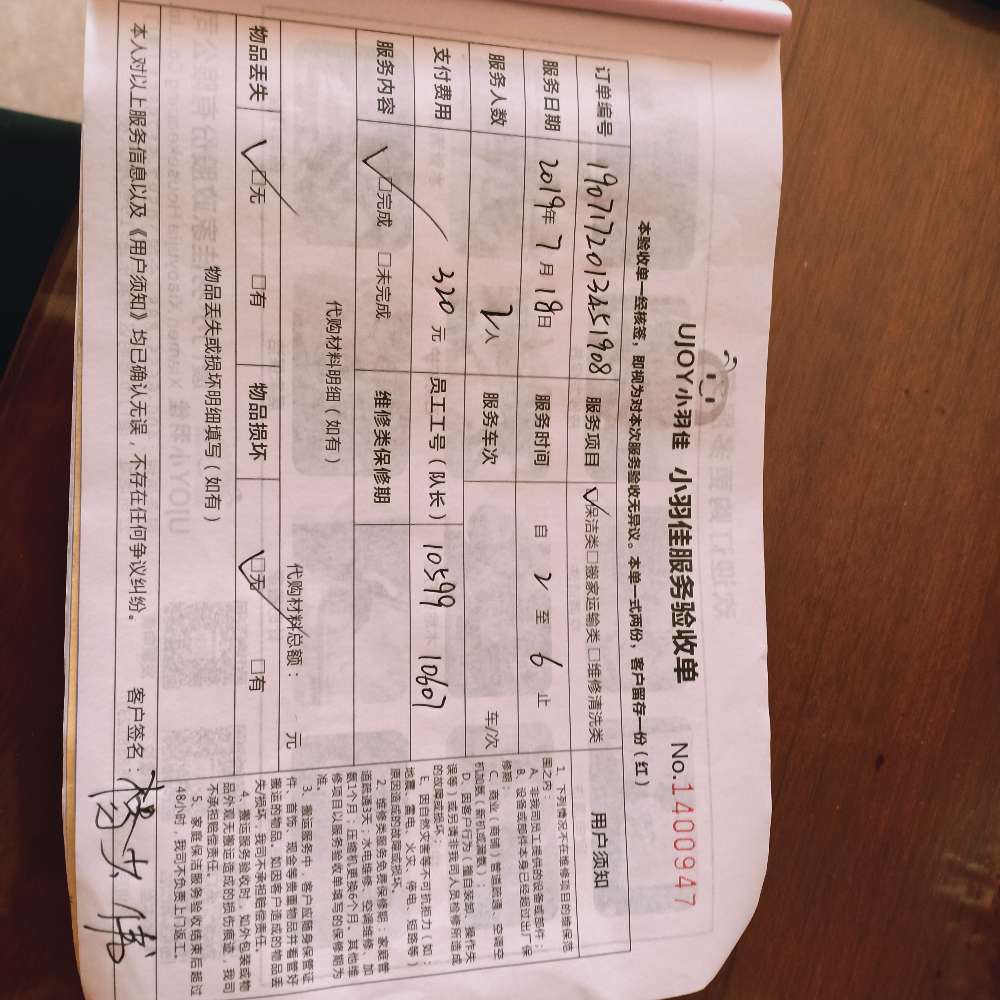 UJOY小羽佳 小羽佳服务验收单 No.1400947
本验收单一经核签，即视为对本次服务验收无异议。本单一式两份，客户留存一份（红）
订单编号 1907172013451908 服务项目 ☑保洁类□搬家运输类□维修清洗类
服务日期 2019年7月18日 服务时间 自 2 至 6 止
服务人数 2人 服务车次 车/次
支付费用 320 元 员工工号（队长） 10599 10607
服务内容 ☑完成 □未完成 维修类保修期
代购材料明细（如有） 代购材料总额： 元
物品丢失 ☑无 □有 物品损坏 ☑无 □有
物品丢失或损坏明细填写（如有）
用户须知
1、下列情况不在维修项目的维保范
围之内：
A、非我司员工提供的设备或部件；
B、设备或部件本身已经超过出厂保
修期；
C、商业（商铺）管道疏通、空调空
机加氨（新机或漏氨）；
D、因客户行为（擅自装卸、操作失
误等）或另请非我司人员检修所造成
的故障或损坏；
E、因自然灾害等不可抗拒力（如：
地震、雷电、火灾、停电、短路等）
原因造成的故障或损坏。
2、维修类服务免费保修期：家庭管
道疏通3天；水电维修、空调维修、加
氨1个月；压缩机更换6个月。其他维
修项目以服务验收单填写的保修期为
准。
3、搬运服务中，客户应随身保管证
件、首饰、现金等贵重物品并看管好
搬运的物品，如因客户造成的物品丢
失/损坏，我司不承担赔偿责任。
4、搬运服务验收时，如外包装或物
品外观无搬运造成的损伤痕迹，我司
不承担赔偿责任。
5、家庭保洁服务验收结束后超过
48小时，我司不负责上门返工。
本人对以上服务信息以及《用户须知》均已确认无误，不存在任何争议纠纷。 客户签名：